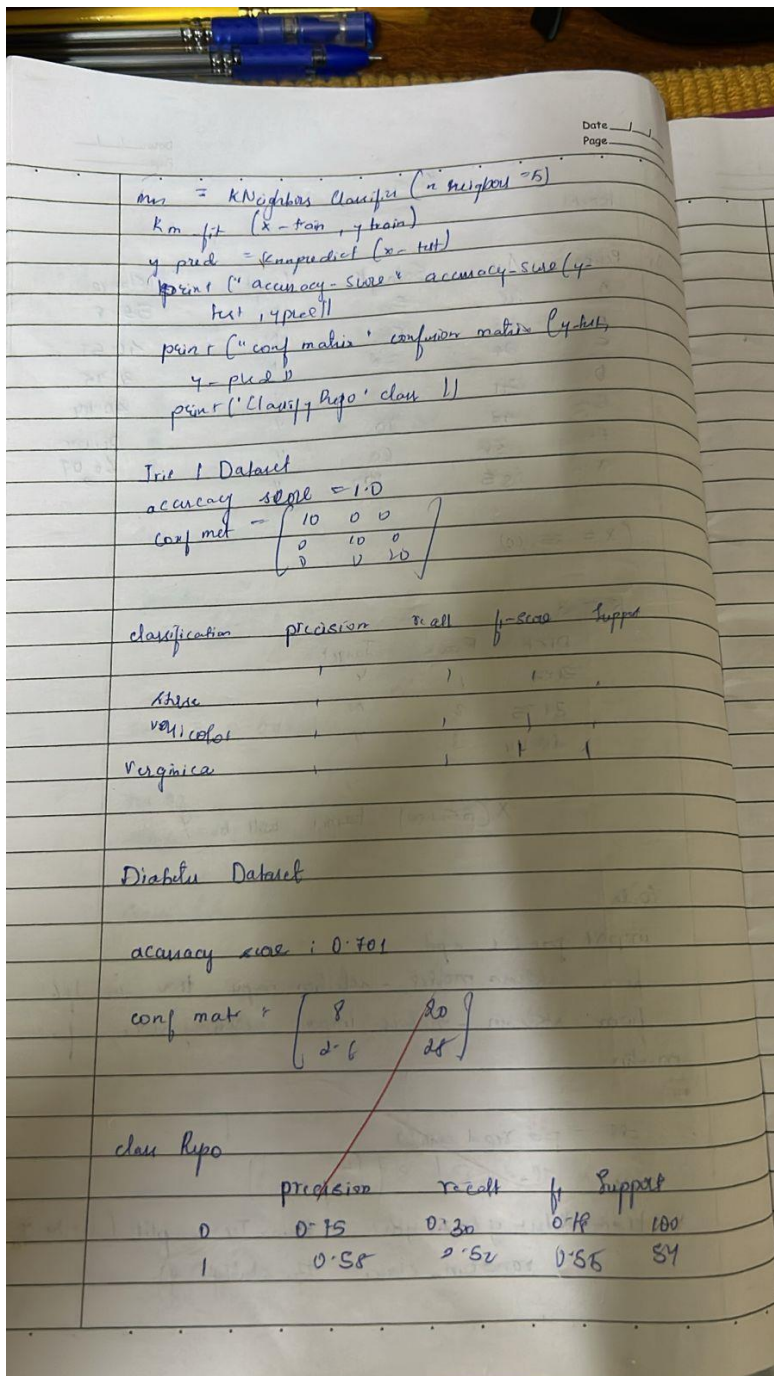 Date
Page
= KNeighbors Classifier (n neighbors = 5)
fit (x-train, y train)
y pred = knnpredict (x-test)
print ("accuracy-score" accuracy-score (y-
test, ypred))
print ("conf matrix" confusion matrix (y-test,
y-pred))
print ('Classify Repo' class ))
Iris Dataset
accuracy score = 1.0
conf mat = [ 10 0 0
0 10 0
0 0 20 ]
classification precision recall f1-score Support
1 1 1
1 1 1 1
versicolor
Verginica 1 1 1 1
Diabetes Dataset
accuracy score : 0.701
conf mat : [ 8 20
26 28 ]
class Repo
precision recall f1 Support
0 0.75 0.30 0.78 100
1 0.58 0.52 0.55 54